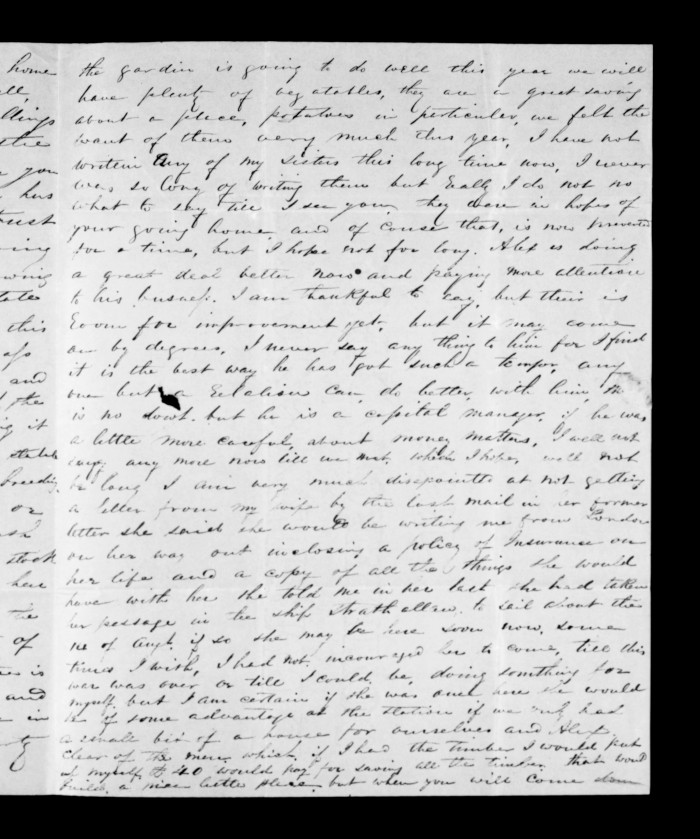 home
the gardin is going to do well this year we will
have plenty of vegatables, they are a great saving
about a place, potatoes in perticuler, we felt the
the
want of them verry much this year, I have not
you
writein any of my sisters this long time now, I never
has
was so long of writing them but Really I do not no
trust
what to say till I see you, they were in hopes of
your going home and of couse that, is now prevented
for a time, but I hope not for long. Alex is doing
a great deal better now and paying more attention
to his busness. I am thankful to say, but their is
Room for improvement yet, but it may come
this
on by degrees, I never say any thing to him for I find
it is the best way he has got such a temper, any
and
one but a Relation can do better with him, he
the
is no dowt but he is a capital manager, if he was
it
a little more careful about money matters, I will not
say any more now till we meet, which I hope, will not
breeding
be long I am very much disapointed at not getting
or
a letter from my wife by the last mail in her former
letter she said she would be writing me from London
stock
on her way out inclosing a policy of Insurance on
her life and a copy of all the things she would
have with her she told me in her last she had taken
the
her passage in the ship Strathallan, to sail about the
of
of Augt. if so she may be here soon now, some
times I wish, I had not incouraged her to come, till this
is
war was over or till I could be doing something for
and
myself but I am certain if she was once here she would
in
be of some advantage at the station if we only had
a small bit of a house for ourselves and Alex
clear of the men, which if I had the timber I would put
up myself £40 would pay for sawing all the timber that would
build a nice little place, but when you will come down